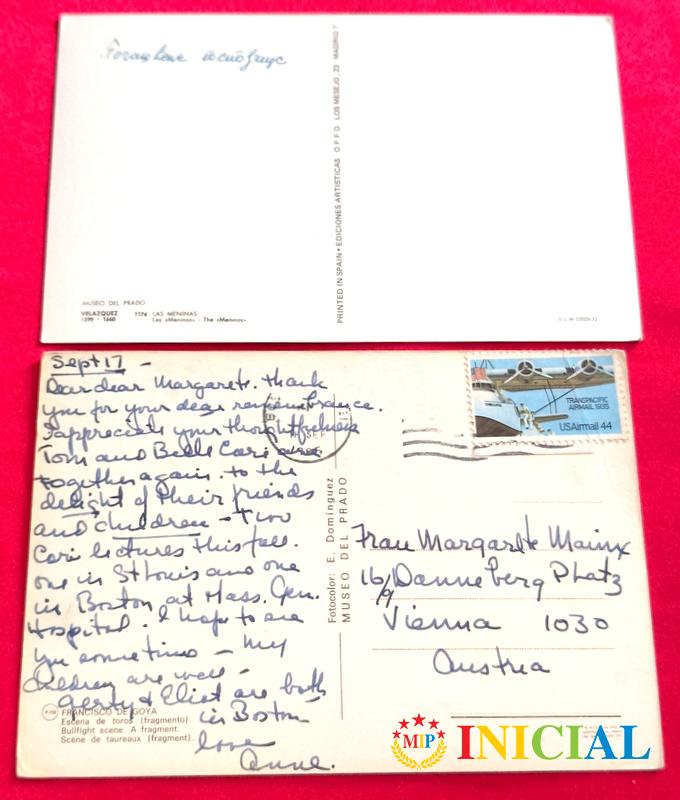 MUSEO DEL PRADO
VELAZQUEZ 1174 LAS MENINAS
1599 - 1660 Las «Meninas» - The «Meninas»
PRINTED IN SPAIN • EDICIONES ARTISTICAS OFFO LOS MESEJO, 23 MADRID 7
Sept 17 -
Dear dear Margarete. Thank
you for your dear remembrance.
I appreciate your thoughtfulness
Tom and Belle Cari are
together again. to the
delight of their friends
and children - Two
Cori lectures this fall.
one in St Louis and one
in Boston at Mass. Gen.
Hospital. I hope to see
you sometime - My
children are well -
Gerty & Eliot are both
in Boston
love
Anne.
FRANCISCO DE GOYA
Escena de toros (fragmento)
Bullfight scene. A fragment.
Scène de taureaux (fragment).
Fotocolor: E. Domínguez
MUSEO DEL PRADO
SEP
TRANSPACIFIC
AIRMAIL 1935
USAirmail 44
Frau Margarete Mainx
16/9 Danneberg Platz
Vienna 1030
Austria
MIP INICIAL